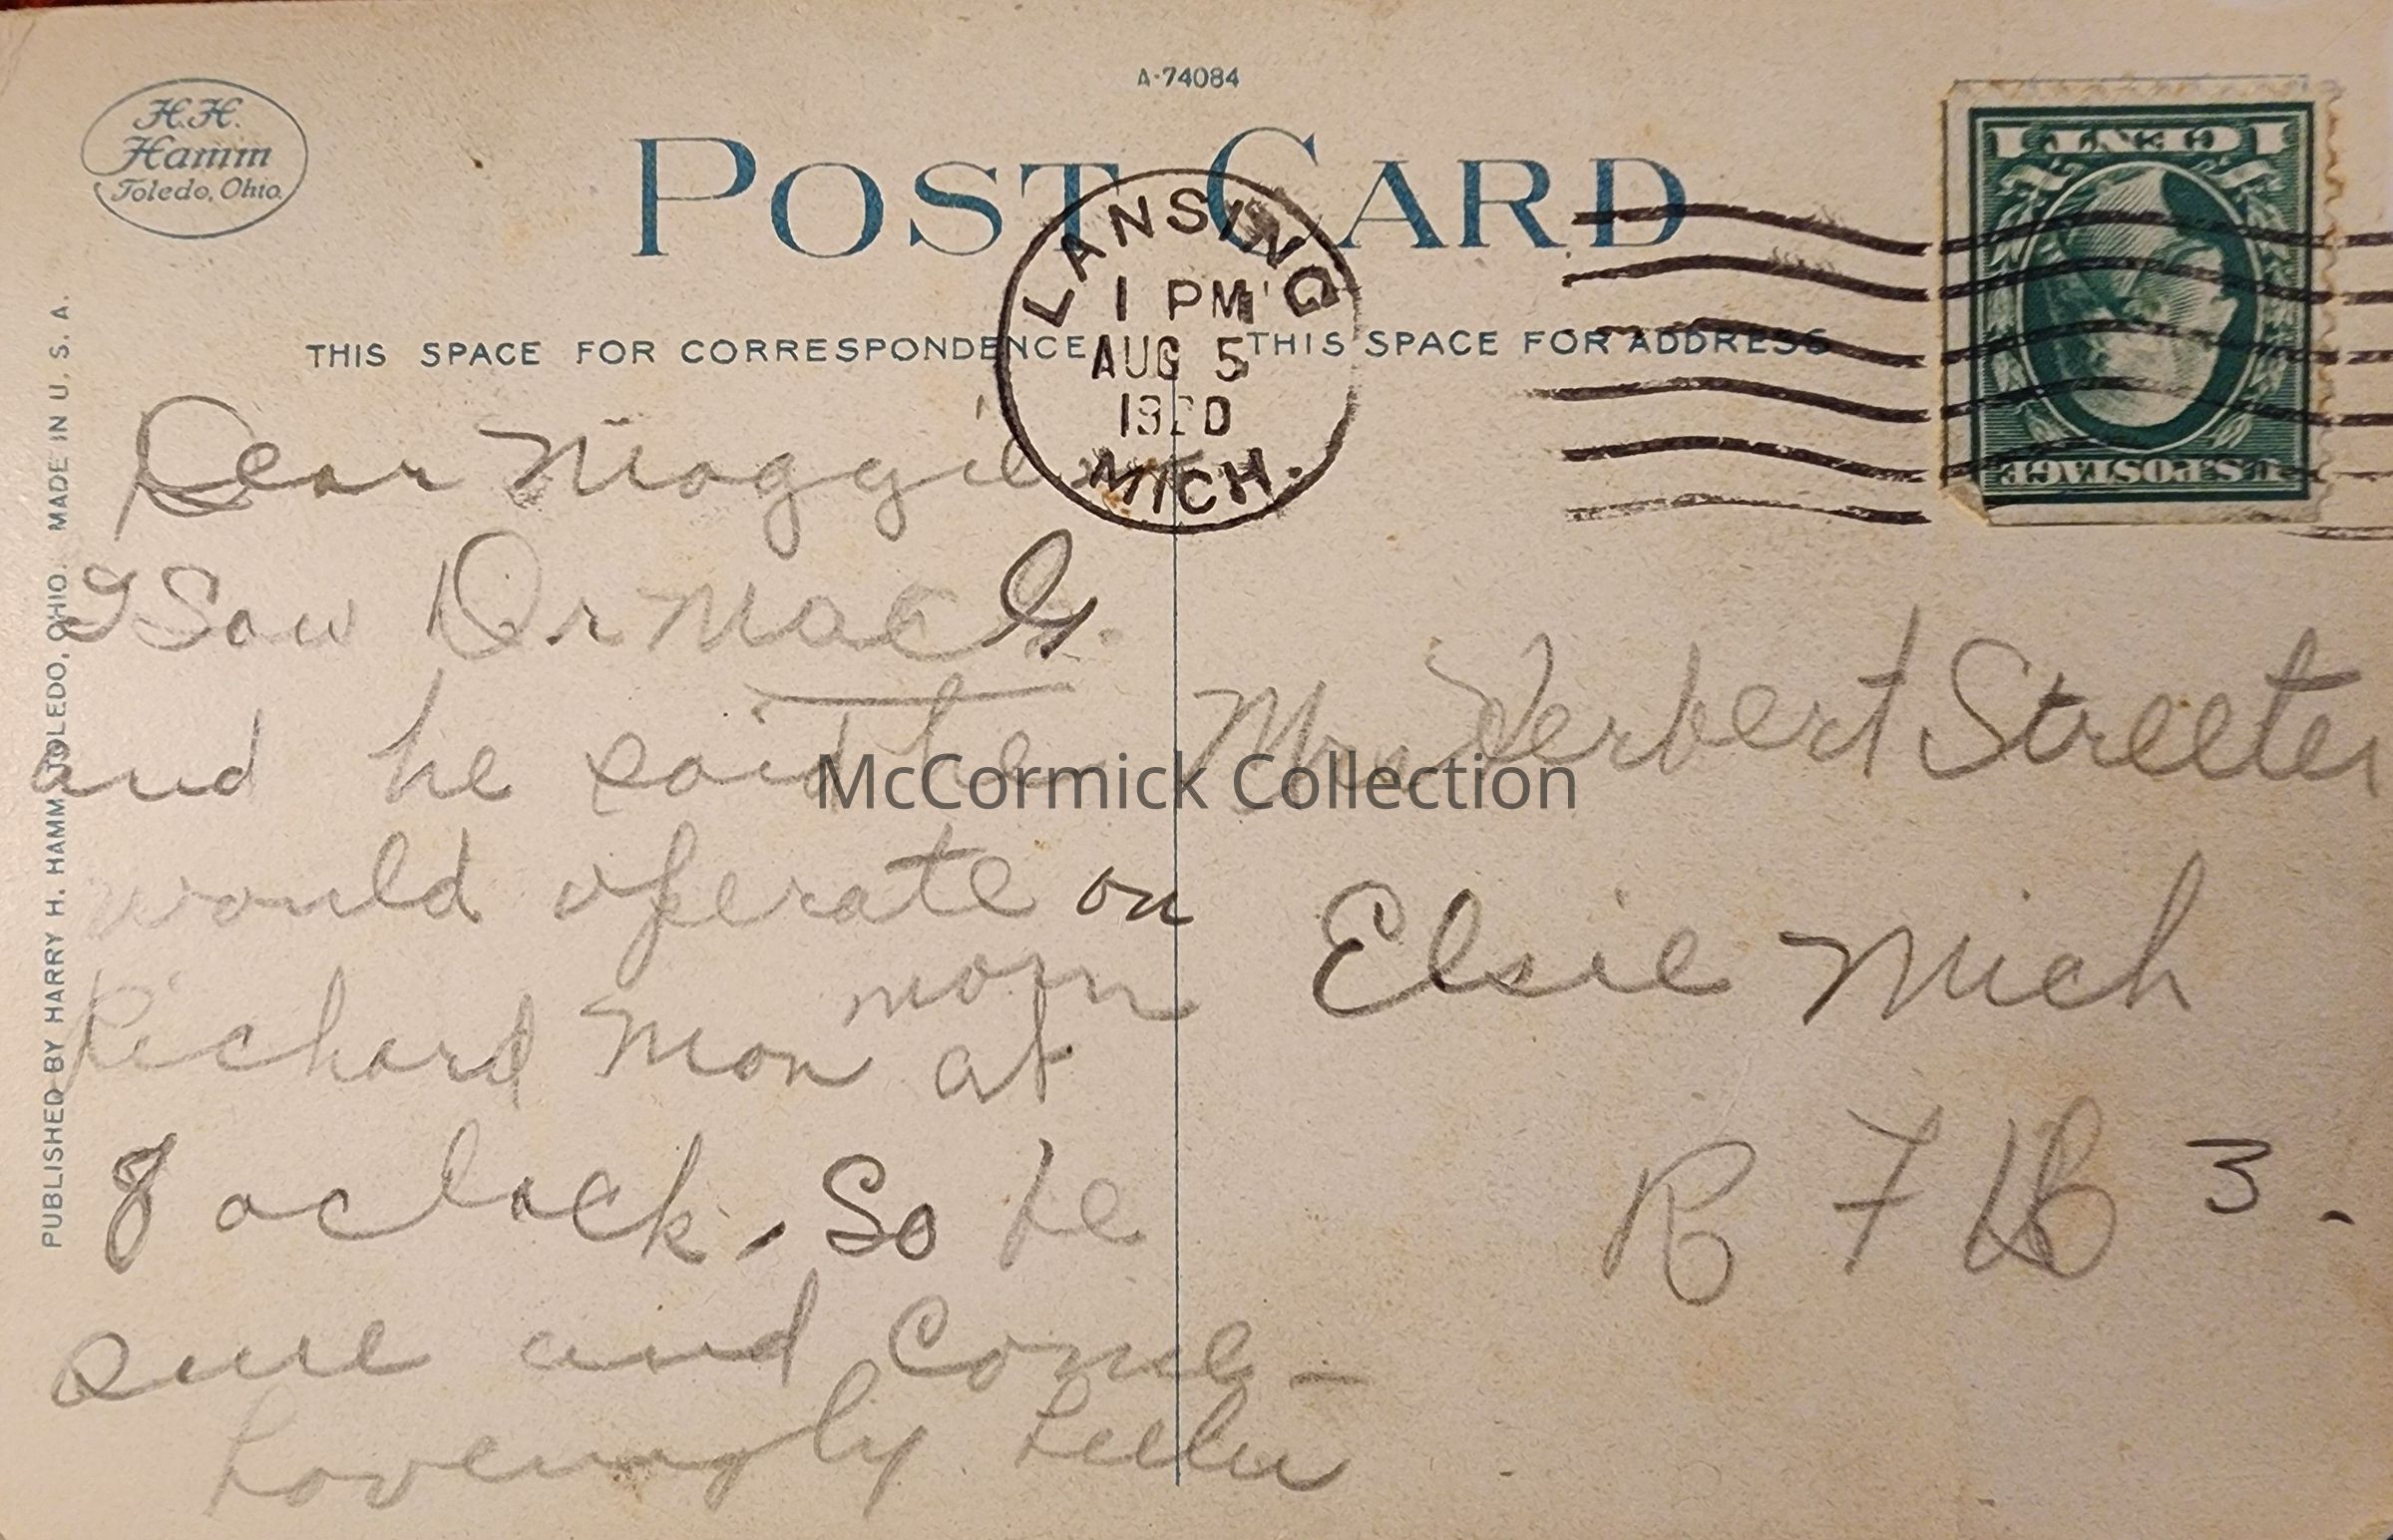 A-74084
H.H.
Hamm
Toledo, Ohio.
POST CARD
LANSING
1 PM
AUG 5
1920
MICH.
1 CENT 1
U.S. POSTAGE
THIS SPACE FOR CORRESPONDENCE
THIS SPACE FOR ADDRESS
PUBLISHED BY HARRY H. HAMM, TOLEDO, OHIO. MADE IN U. S. A.
Dear Maggie
I Saw Dr Mac G.
and he said he
would operate on
Richard Mon morn at
8 oclock. So be
sure and Come –
Lovingly
Mrs Herbert Streeter
Elsie Mich
R F D 3.
McCormick Collection